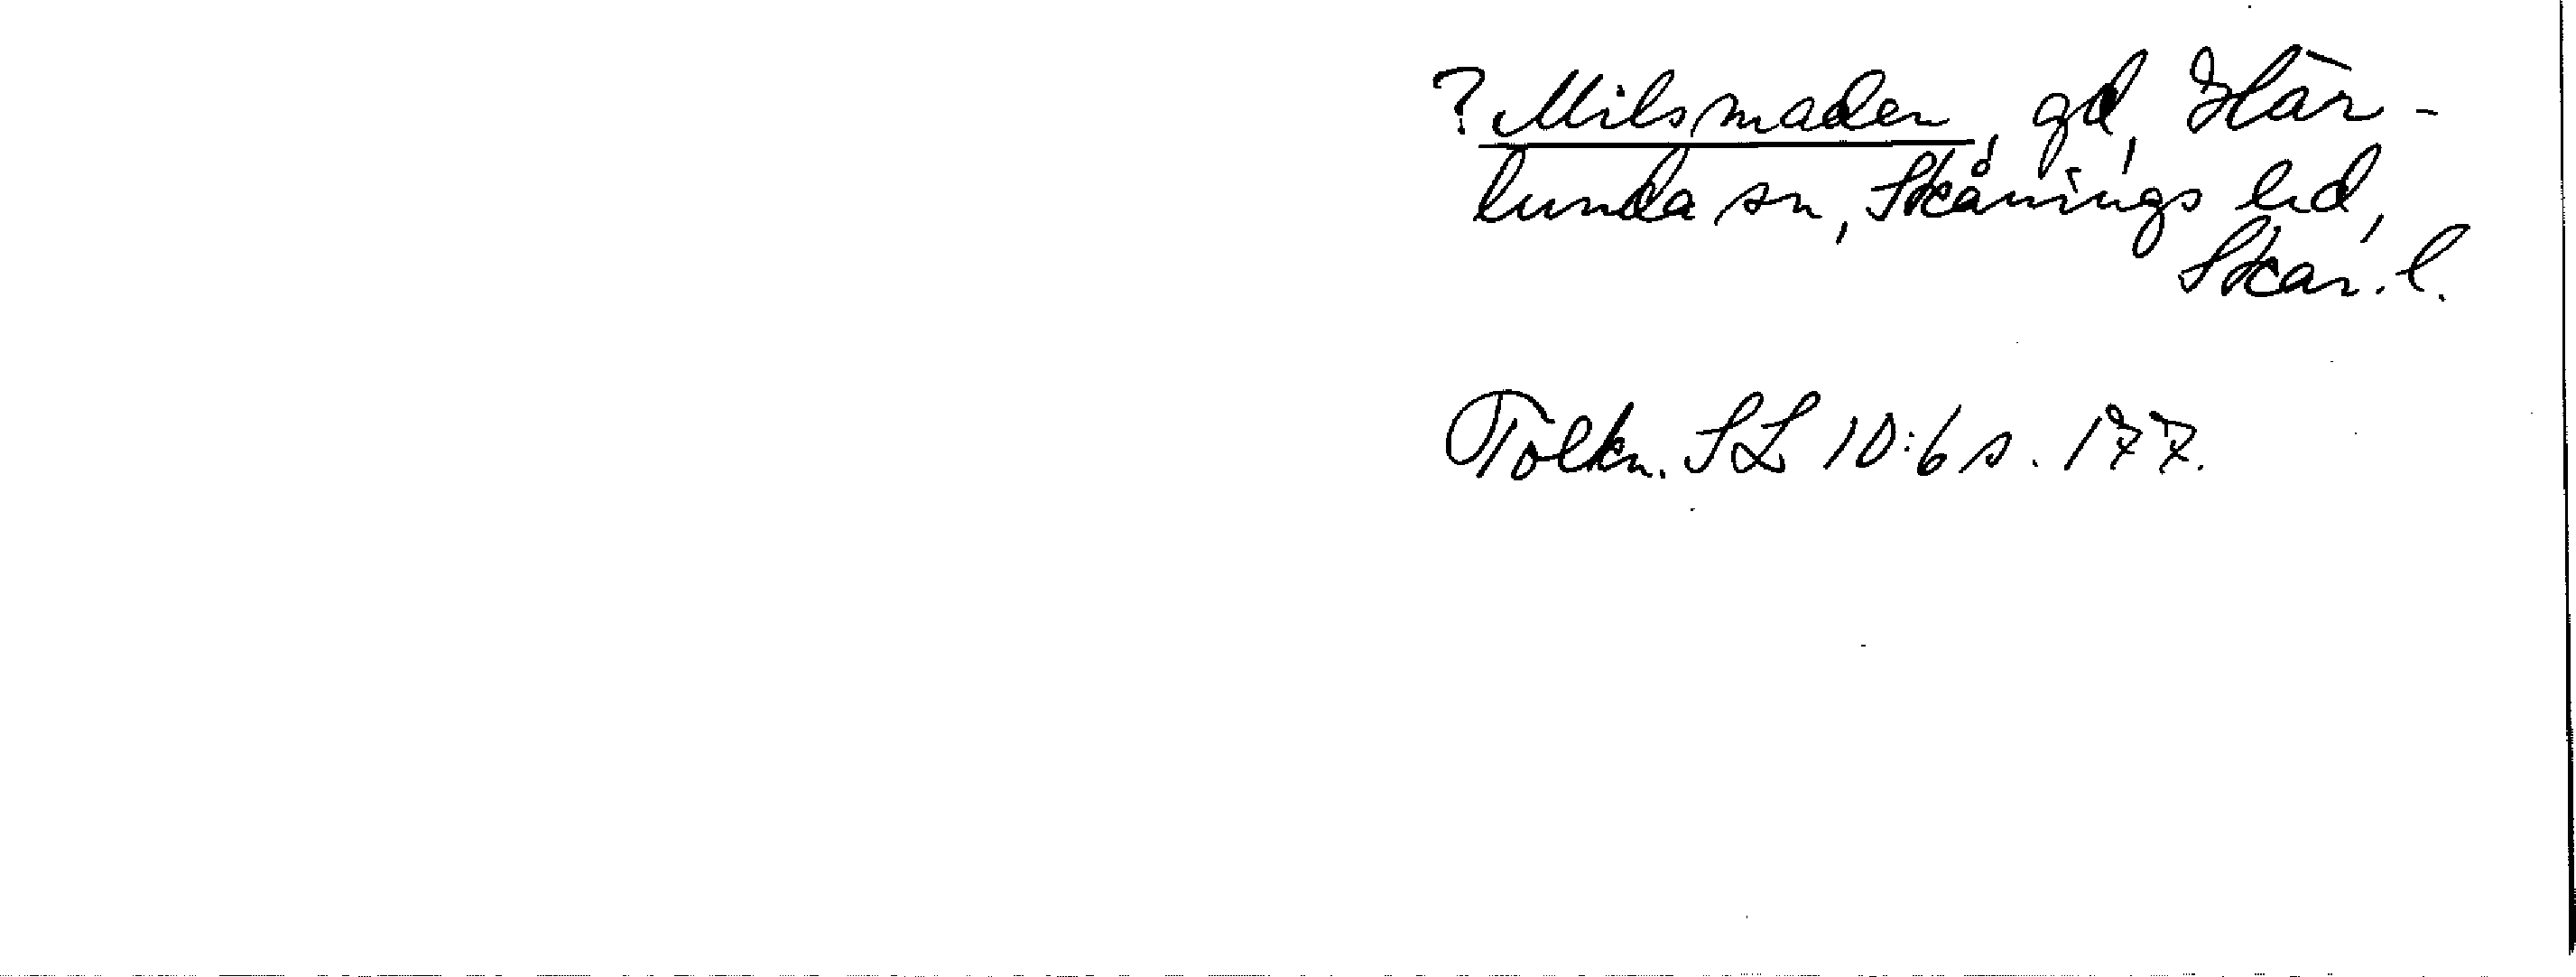 ? Milsmaden, gd, Här-
lunda sn, Skånings hd,
Skar. l.
Tolkn. SL 10:6 s. 177.